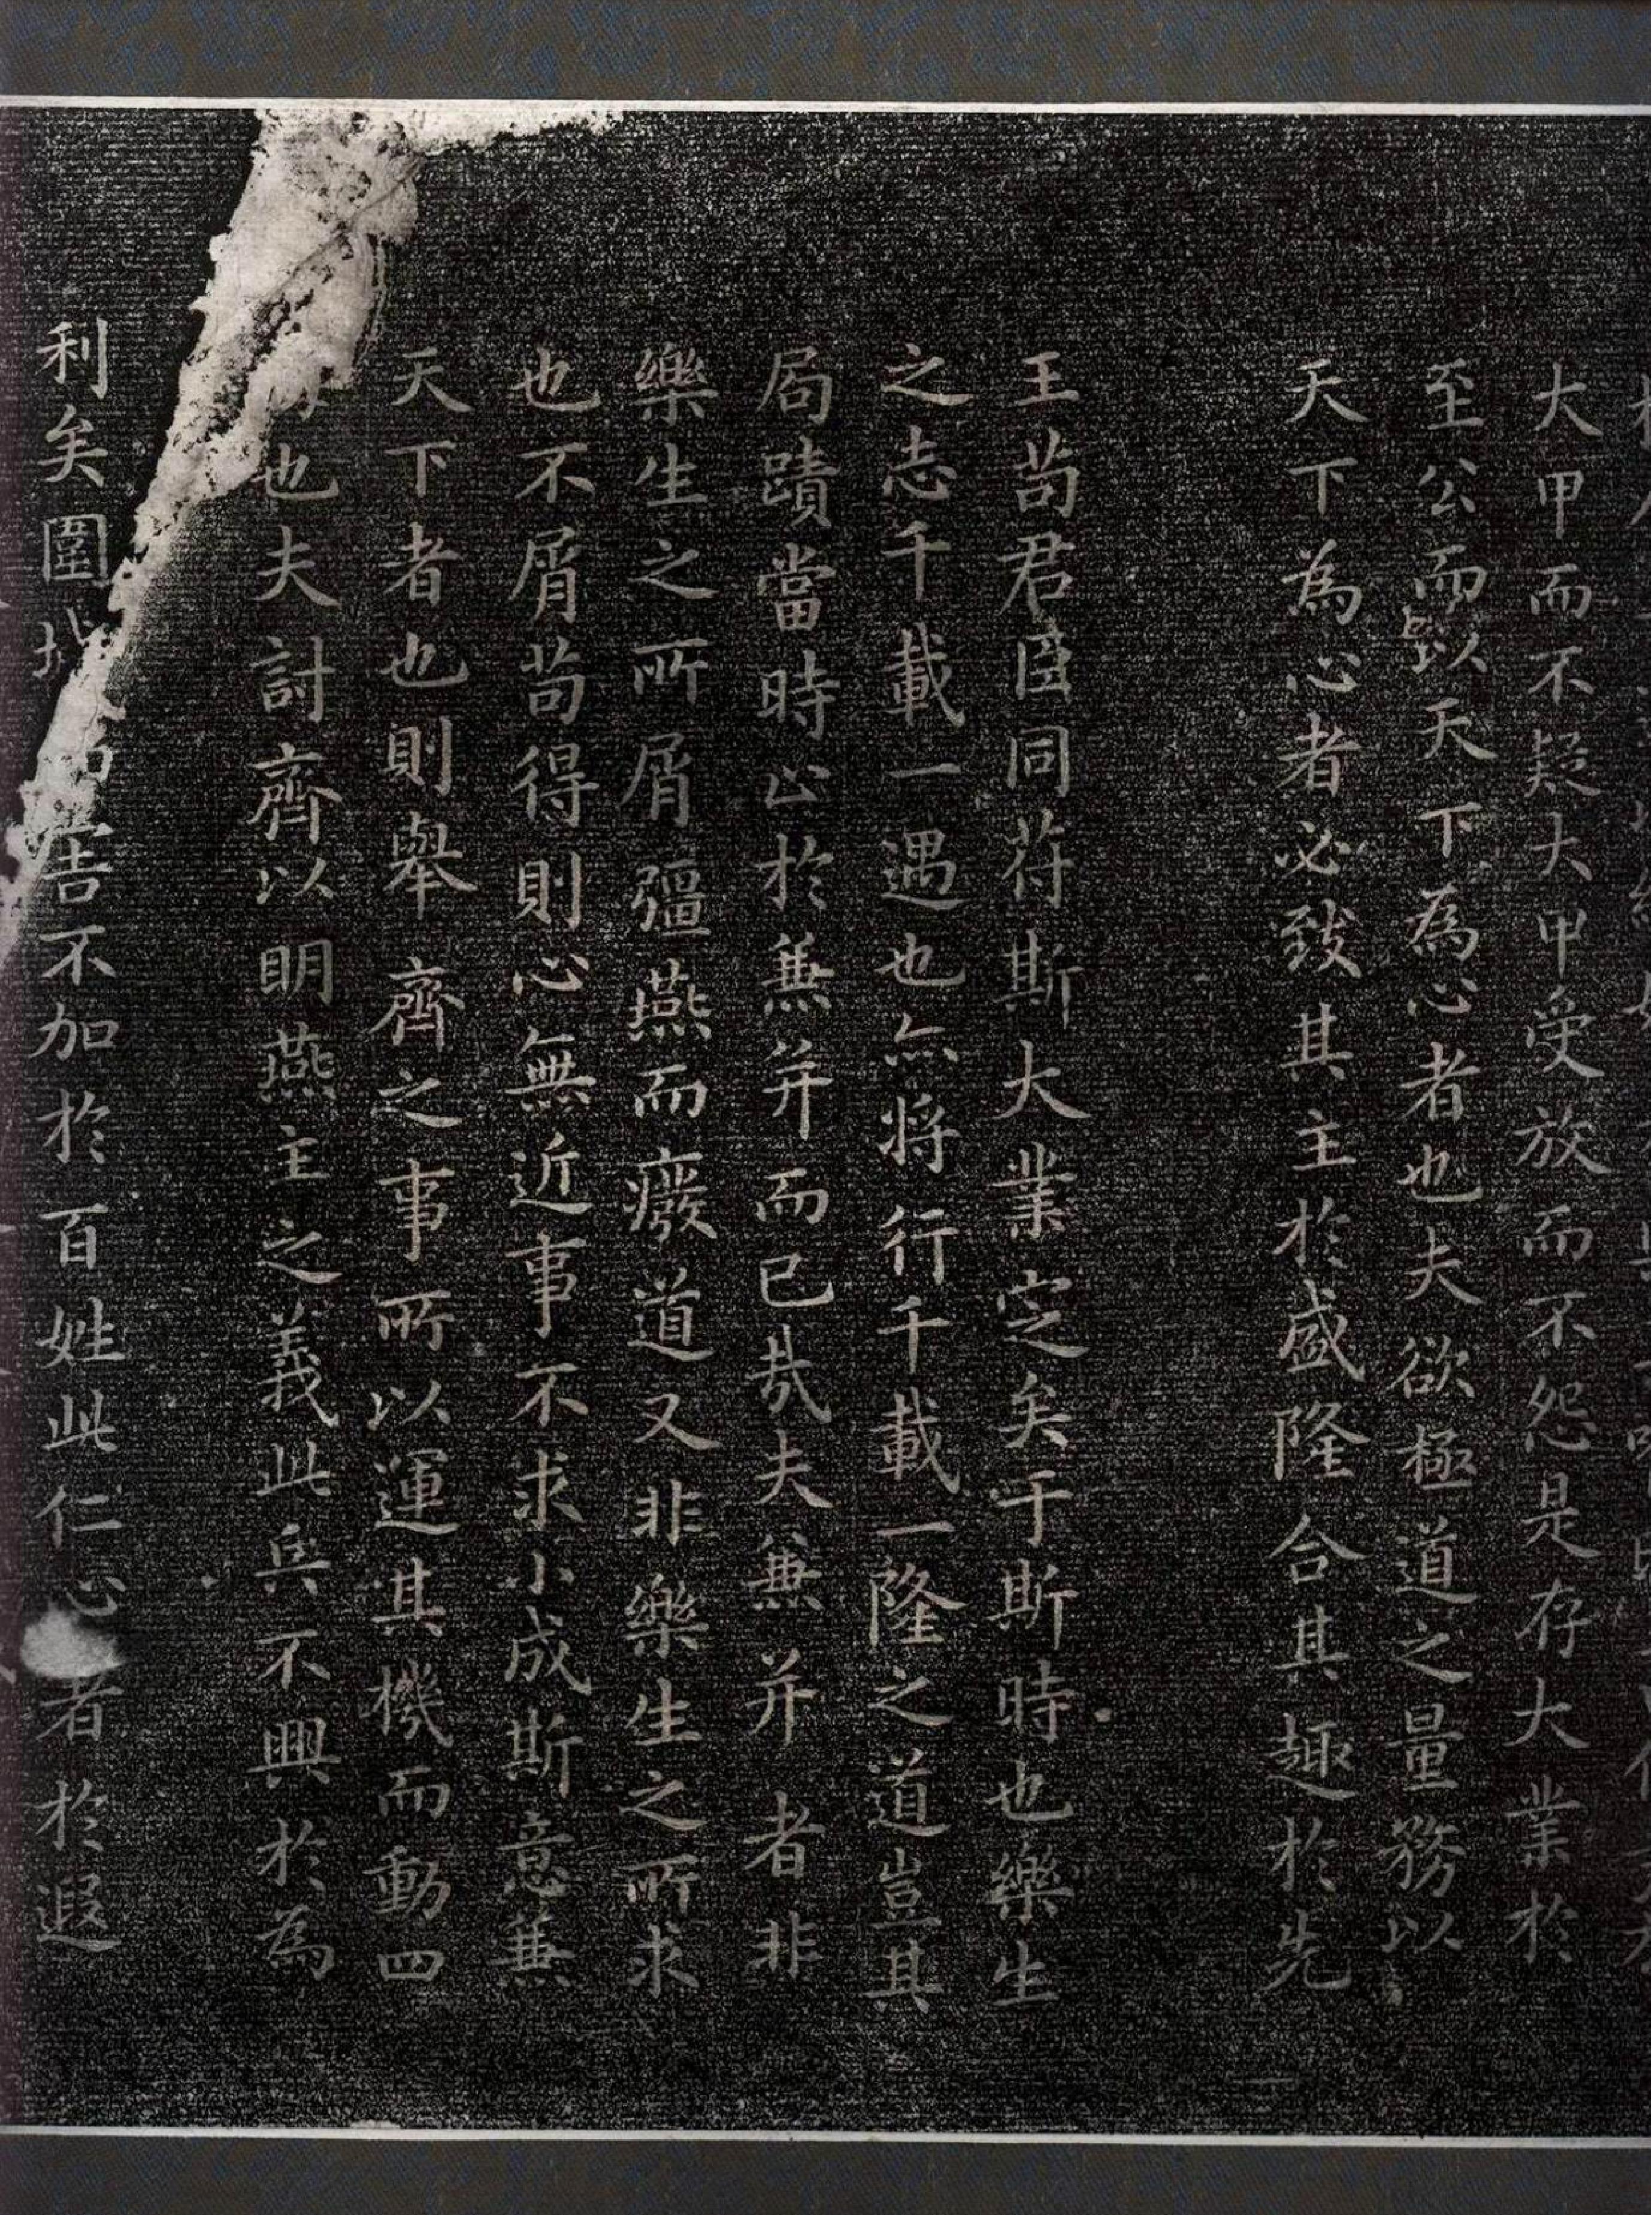 大甲而不疑大甲受放而不怨是存大業於
至公而以天下為心者也夫欲極道之量務以
天下為心者必致其主於盛隆合其趣於先
王苟君臣同符斯大業定矣于斯時也樂生
之志千載一遇也亦將行千載一隆之道豈其
局蹟當時止於兼并而已哉夫兼并者非
樂生之所屑彊燕而癈道又非樂生之所求
也不屑苟得則心無近事不求小成斯意兼
天下者也則舉齊之事所以運其機而動四
也夫討齊以明燕主之義此兵不興於為
利矣圍害不加於百姓此仁心著於遐